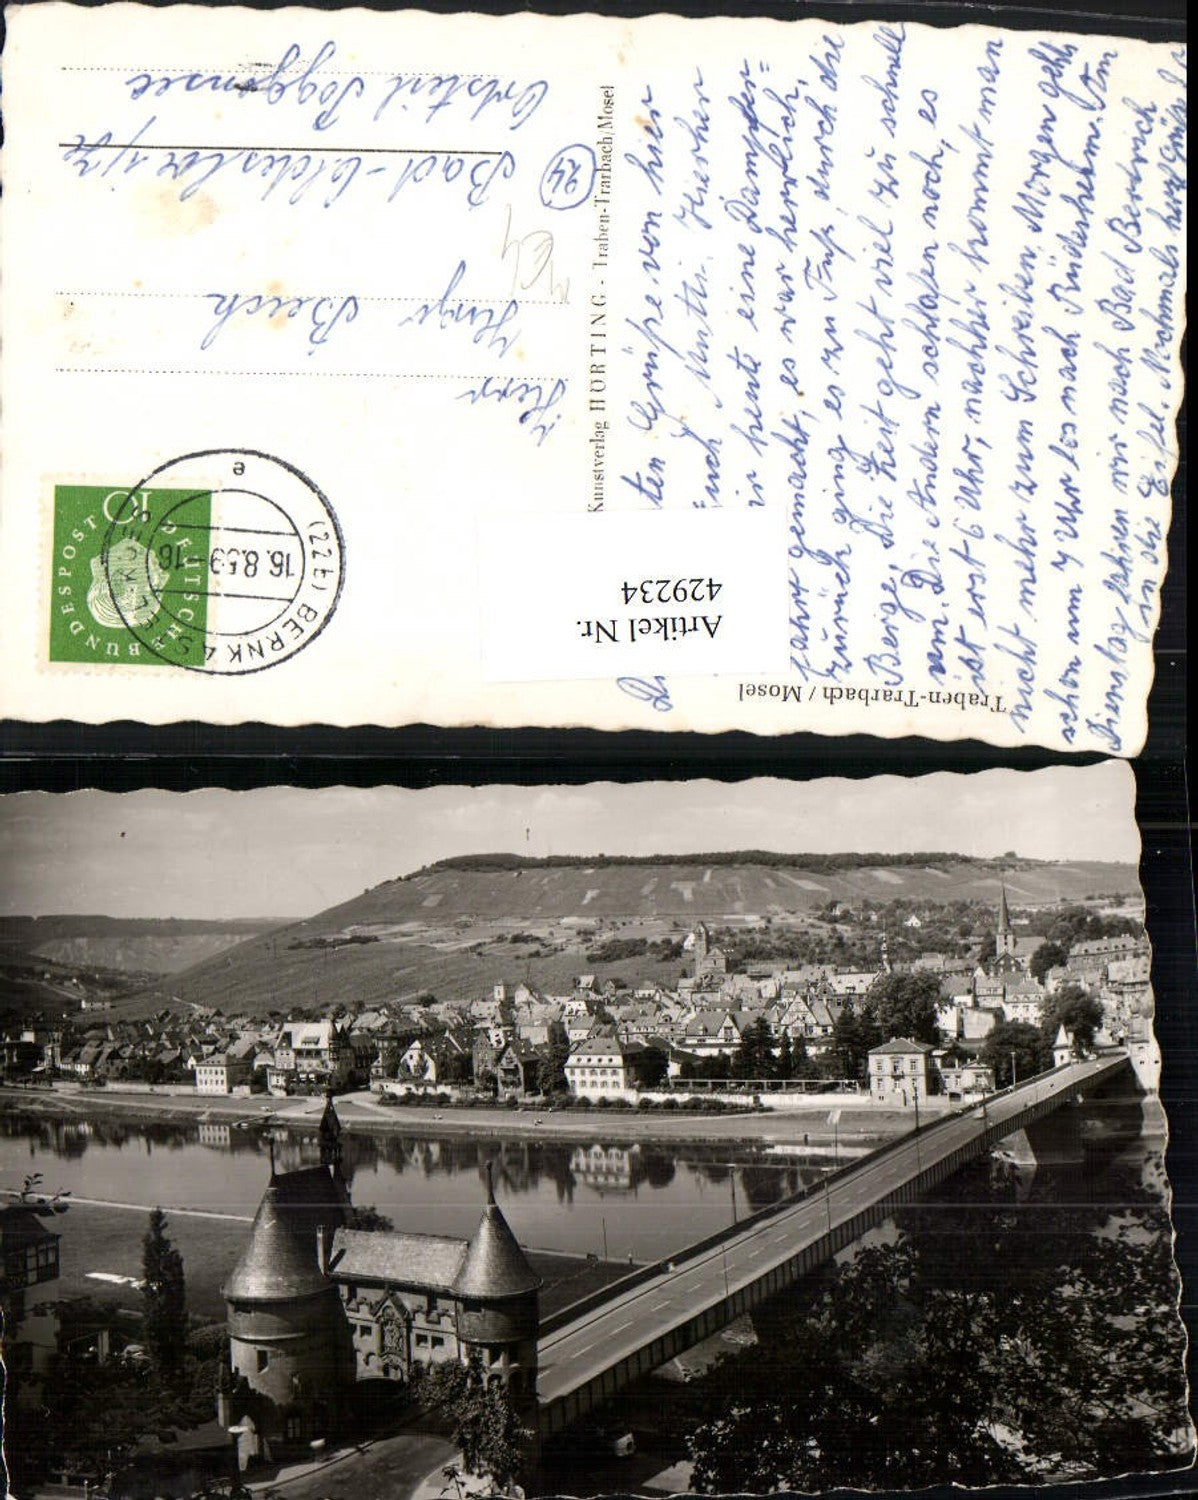 Traben-Trarbach / Mosel
Artikel Nr.
429234
Kunstverlag HORTING - Traben-Trarbach/Mosel
DEUTSCHE BUNDESPOST
10
(22b) BERNKASTEL-KUES
16.8.59-16
e
Herr
Beich
(24) Bad-Oldesloe
Ortsteil Poggensee
ten Grüße von hier
Euch Mutti. Hierher
ir heute eine Dampfer=
fahrt gemacht, es war herrlich,
zurück ging es zu Fuß durch die
Berge. Die Zeit geht viel zu schnell
um. Die Andern schlafen noch, es
ist erst 6 Uhr, nachher kommt man
nicht mehr zum Schreiben. Morgen geht's
schon um 7 Uhr los nach Rüdesheim. Am
Dienstag fahren wir nach Bad Bertrich
in die Eifel. Nochmals herzl. Grüße